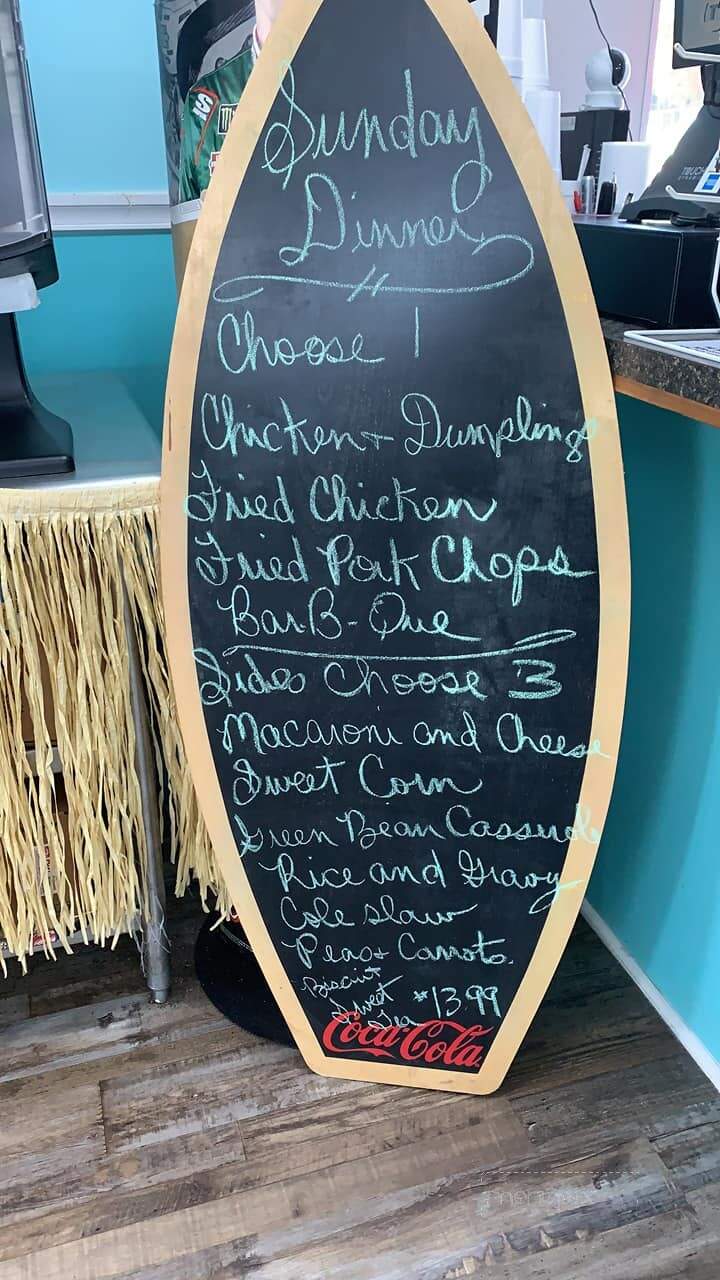 Sunday
Dinner
Choose 1
Chicken + Dumplings
Fried Chicken
Fried Pork Chops
Bar-B-Que
Sides Choose 3
Macaroni and Cheese
Sweet Corn
Green Bean Casserole
Rice and Gravy
Cole slaw
Peas + Carrots
Biscuit
Sweet
Tea
$13.99
Coca-Cola